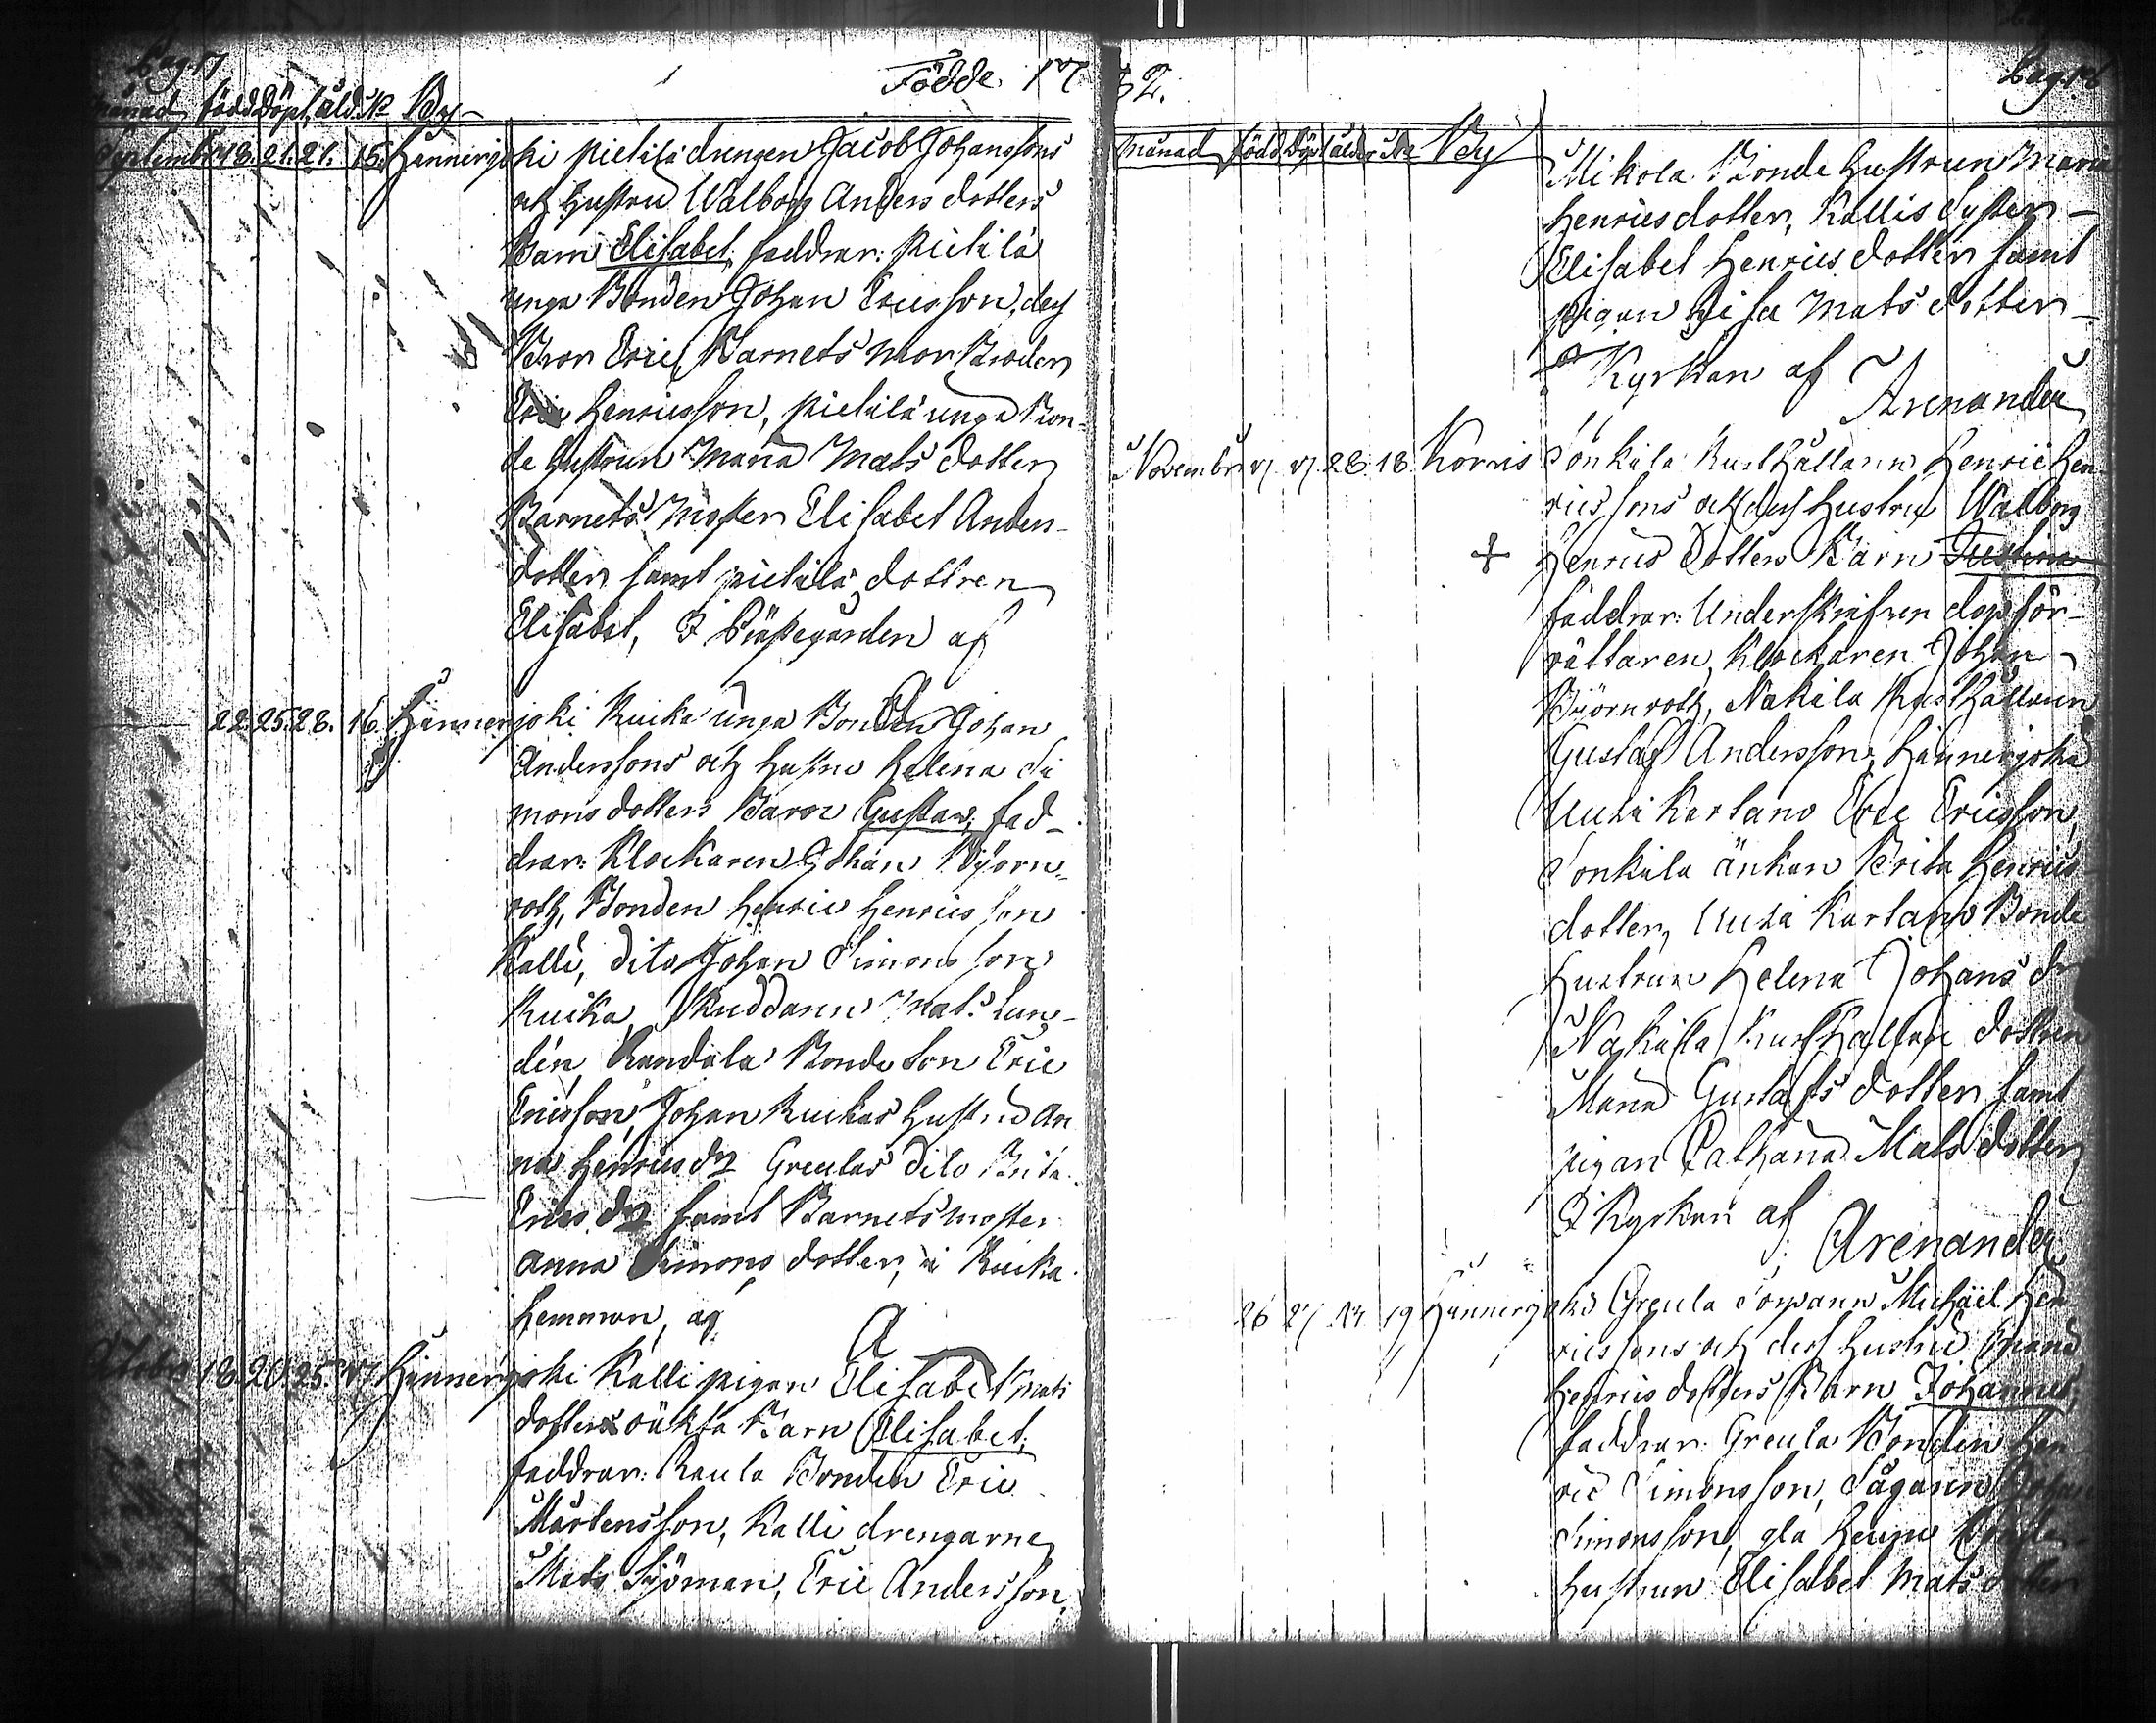 Pag. 17
Födde 17
Månad född döpt åld. N By
September 18. 21. 21. 15. Hinnerjoki Pietilä drengen Jacob Johanssons
och hustru Walborg Anders dotters
Barn Elisabet, faddrar: Pietilä
unga Bonden Johan Ericsson, des
Bror Eric, Barnets mor Broder
Eric Henricsson, pietilä unga Bon-
de hustrun Maria Mats dotter
Barnets Moster Elisabet Anders-
dotter samt pietilä dottren
Elisabet, I Prästegården af
A
22. 25. 28. 16. Hinnerjoki Ruika unga Bonden Johan
Anderssons och hustru Helena Si
mons dotters Barn Gustav, fad-
drar: Klockaren Johan Björn-
roth, Bonden Henric Henricsson
Kalli, dito Johan Simonsson
Ruika, Mats Lun-
dén, Bonde Son Eric
Ericsson, Johan Ruikas hustru An
na Henricsdr Greulas dito Brita
Erics dr samt Barnets moster
Anna Simons dotter, i Ruika
hemman, af
A
October 18. 20. 25. 17. Hinnerjoki Kalli pigan Elisabet Mats
dotters oäkta Barn Elisabet,
faddrar: Raula Bonden Eric
Mårtensson, Kalli drengarne
Mats Sjöman, Eric Andersson,
82.
Pag. 18
Månad född Döpt ålder N By
Mikola Bonde hustrun Maria
Henricsdotter, Kallis Syster
Elisabet Henrics dotter samt
pigan Lisa Mats dotter
I Kyrkan af
Arenander
November 17 17 28 18 Korvis Sonkila Rusthållaren Henric Hen-
ricssons och des hustru Walborg
+ Henrics dotters Barn Justina
faddrar: Underskrifven dopför-
rättaren, Klockaren Johan
Björnroth, Nakila Rusthållaren
Gustaf Andersson, Hinnerjoki
Uusi Kartano Eric Ericsson,
Sonkila änkan Brita Henrics
dotter, Uusi Kartano Bonde
hustrun Helena Johans dr
Nakila Rusthållare dottren
Maria Gustafs dotter samt
pigan Catharina Mats dotter
I Kyrkan af
Arenander
26 27 19 Hinnerjoki Greula Michaël Hen
ricssons och des hustru Maria
Henrics dotters Barn Johannes,
faddrar: Greula Bonden Hen
ric Simonsson, Johan
Simonsson, Bonde
hustrun Elisabet Mats dotter